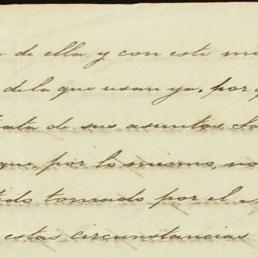 de ella y con este
de la que usan ya. por
de sus asuntos.
que, por lo mismo, no
tomado por el
estas circunstancias